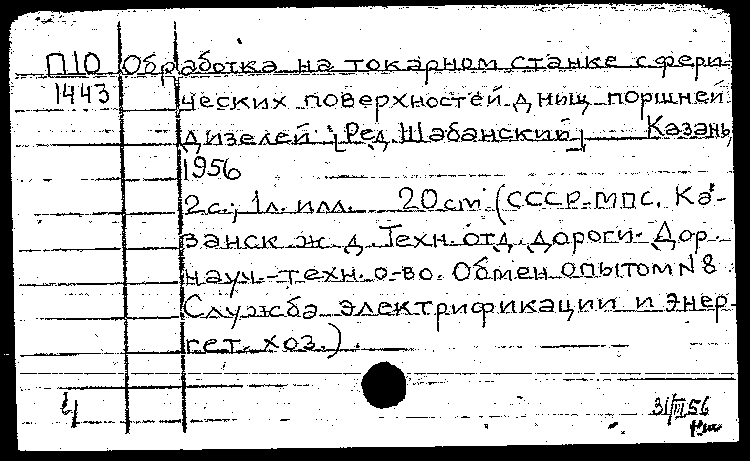 П10 Обработка на токарном станке сфери-
1443 ческих поверхностей днищ поршней
дизелей. [Ред. Шабанский] Казань,
1956
2 с.; 1 л. илл. 20 см. (СССР. МПС. Ка-
занск. ж. д. Техн. отд. дороги. Дор.
науч.-техн. о-во. Обмен опытом N 8
Служба электрификации и энер-
гет. хоз.).
31/III 56